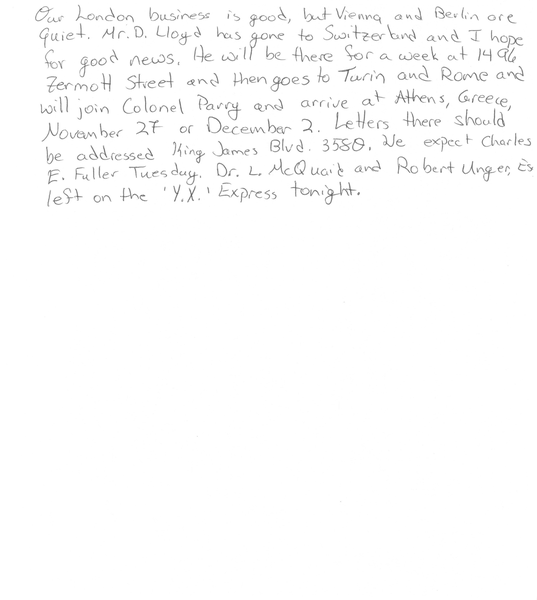 Our London business is good, but Vienna and Berlin are
quiet. Mr. D. Lloyd has gone to Switzerland and I hope
for good news. He will be there for a week at 1496
Zermott Street and then goes to Turin and Rome and
will join Colonel Parry and arrive at Athens, Greece,
November 27 or December 2. Letters there should
be addressed King James Blvd. 3580. We expect Charles
E. Fuller Tuesday. Dr. L. McQuaid and Robert Unger, Es
left on the 'Y.X.' Express tonight.